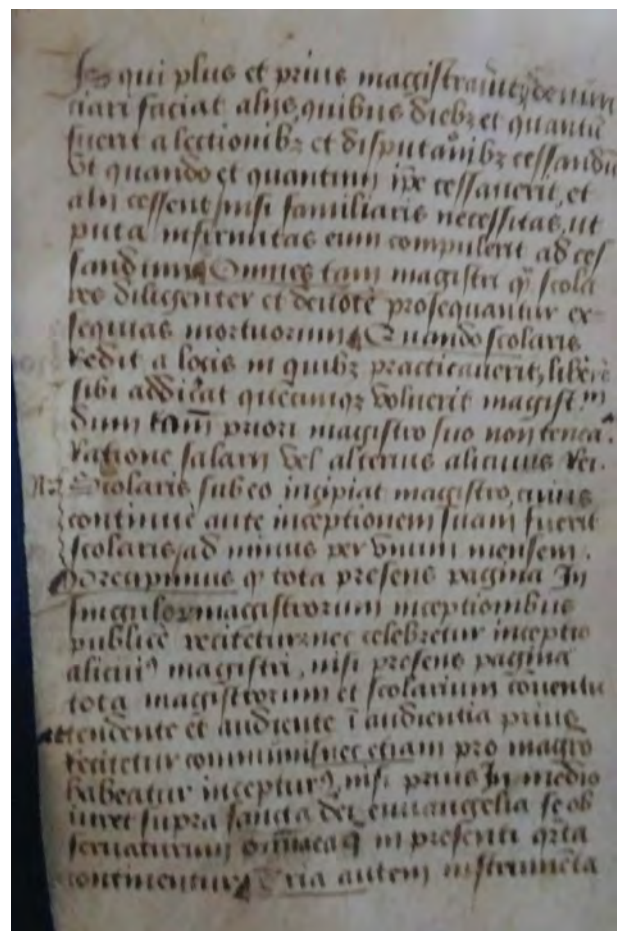 Is qui plus et prius magistravit, denun
ciari faciat aliis, quibus diebꝫ et quantū
fuerit a lectionibꝫ et disputaōnibꝫ cessandū
Vt quando et quantum ip̄e cessaverit, et
alij cessent, nisi familiaris necessitas, ut
puta infirmitas eum compulerit ad ces
sandum Omnes tam magistri qͣ scola
res diligenter et devote prosequantur ex-
sequias mortuorum Quando scolaris
redit a locis in quibꝫ practicaverit, libere
sibi addicat quecunqꝫ voluerit magist.
dum priori magistro suo non tenea
ratione salarij vel alterius alicuius rei.
Scolaris sub eo incipiat magistro, cuius
continuè ante inceptionem suam fuerit
scolaris, ad minus per vnum mensem.
Precipimus qͥ tota presens pagina In
singuloꝝ magistrorum inceptionibus
publicè recitetur, nec celebretur inceptio
alicuiꝰ magistri, nisi presens pagina
tota magistrorum et scolarium cōventu
attendente et audiente ī audientia prius
recitetur communi, nec etiam pro magrō
habeatur inceptur, nisi prius In medio
iuret supra sancta dei euuangelia se ob
servaturum in presenti
continentur, Tria autem instrumēta